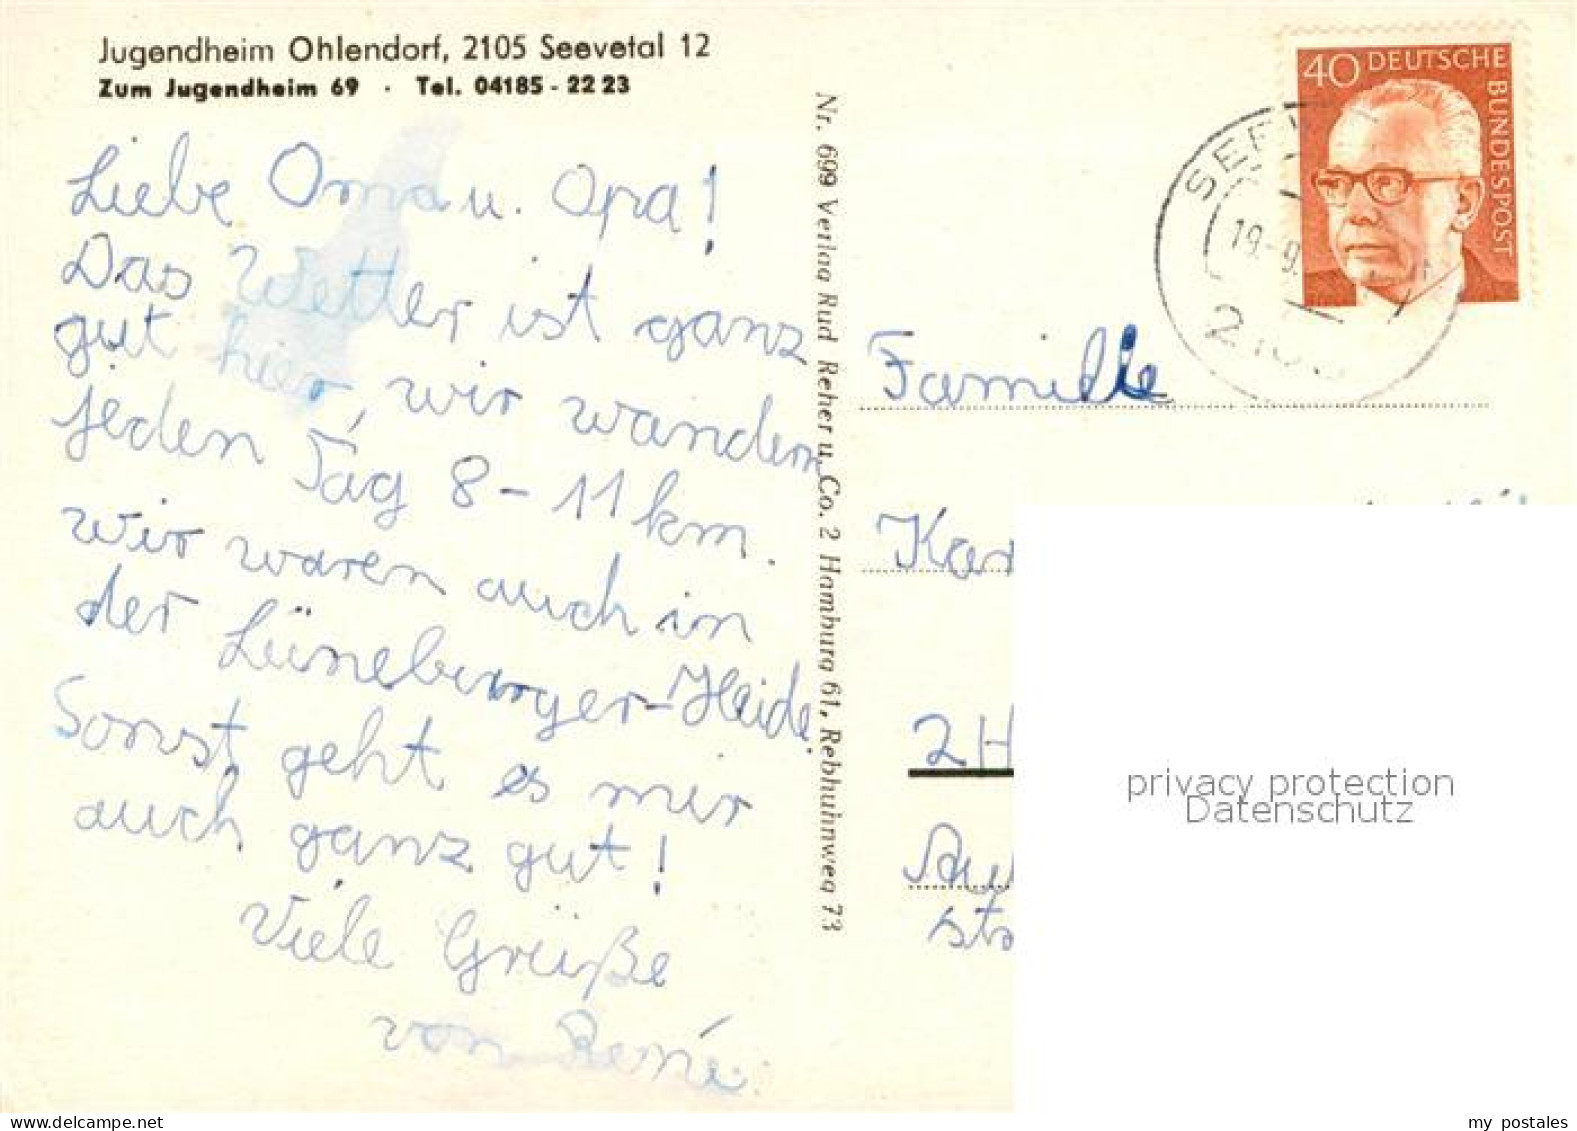 Jugendheim Ohlendorf, 2105 Seevetal 12
Zum Jugendheim 69 · Tel. 04185 - 22 23
Liebe Oma u. Opa!
Das Wetter ist ganz
gut hier, wir wandern
jeden Tag 8-11 km.
wir waren auch in
der Lüneburger-Heide.
Sonst geht es mir
auch ganz gut!
Viele Grüße
von René.
Nr. 699 Verlag Rud Reher u. Co. 2 Hamburg 61, Rebhuhnweg 73
40 DEUTSCHE
BUNDESPOST
19.-9.
Familie
Kar
2H
privacy protection
Datenschutz
my postales